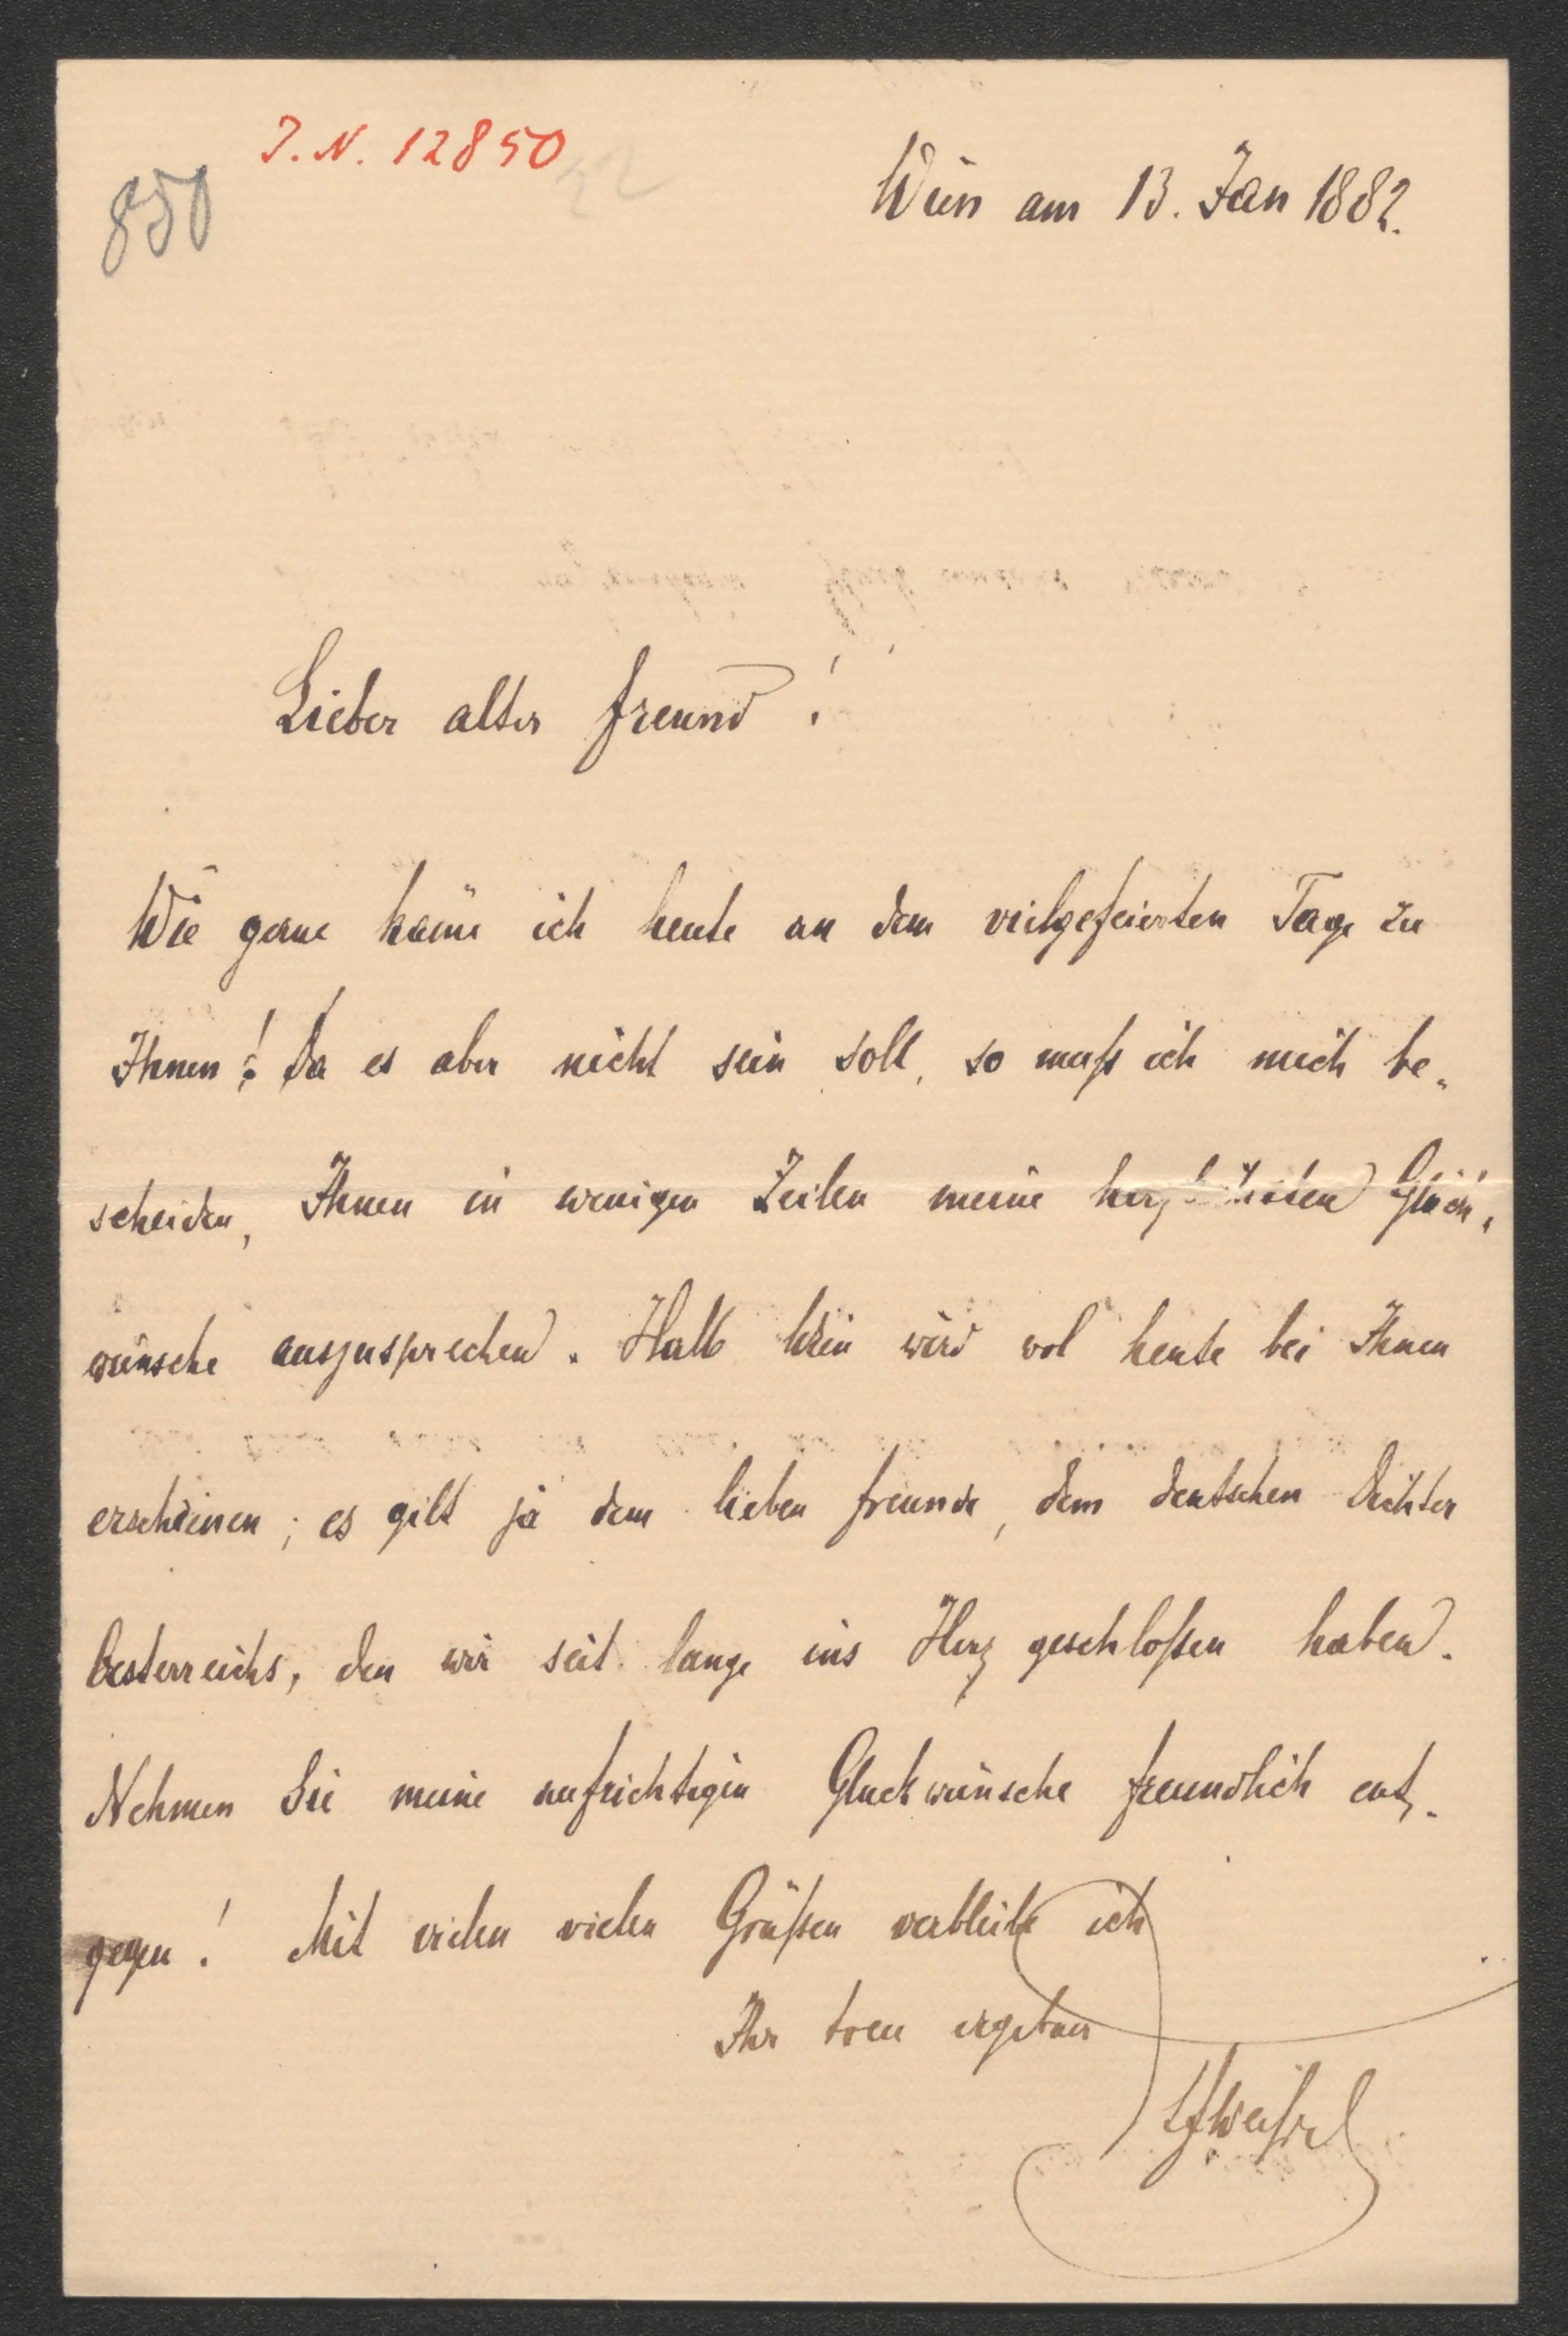 J. N. 12850
850
Wien am 13. Jan 1882.
Lieber alter Freund!
Wie gerne käme ich heute an dem vielgefeierten Tage zu
Ihnen! Da es aber nicht sein soll, so muß ich mich be-
scheiden, Ihnen in wenigen Zeilen meine herzlichsten Glück-
wünsche auszusprechen. Halb Wien wird wol heute bei Ihnen
erscheinen; es gilt ja dem lieben Freunde, dem deutschen Dichter
Oesterreichs, den wir seit lange ins Herz geschloßen haben.
Nehmen Sie meine aufrichtigen Glückwünsche freundlich ent-
gegen! Mit vielen vielen Grüßen verbleibe ich
Ihr treu ergebener